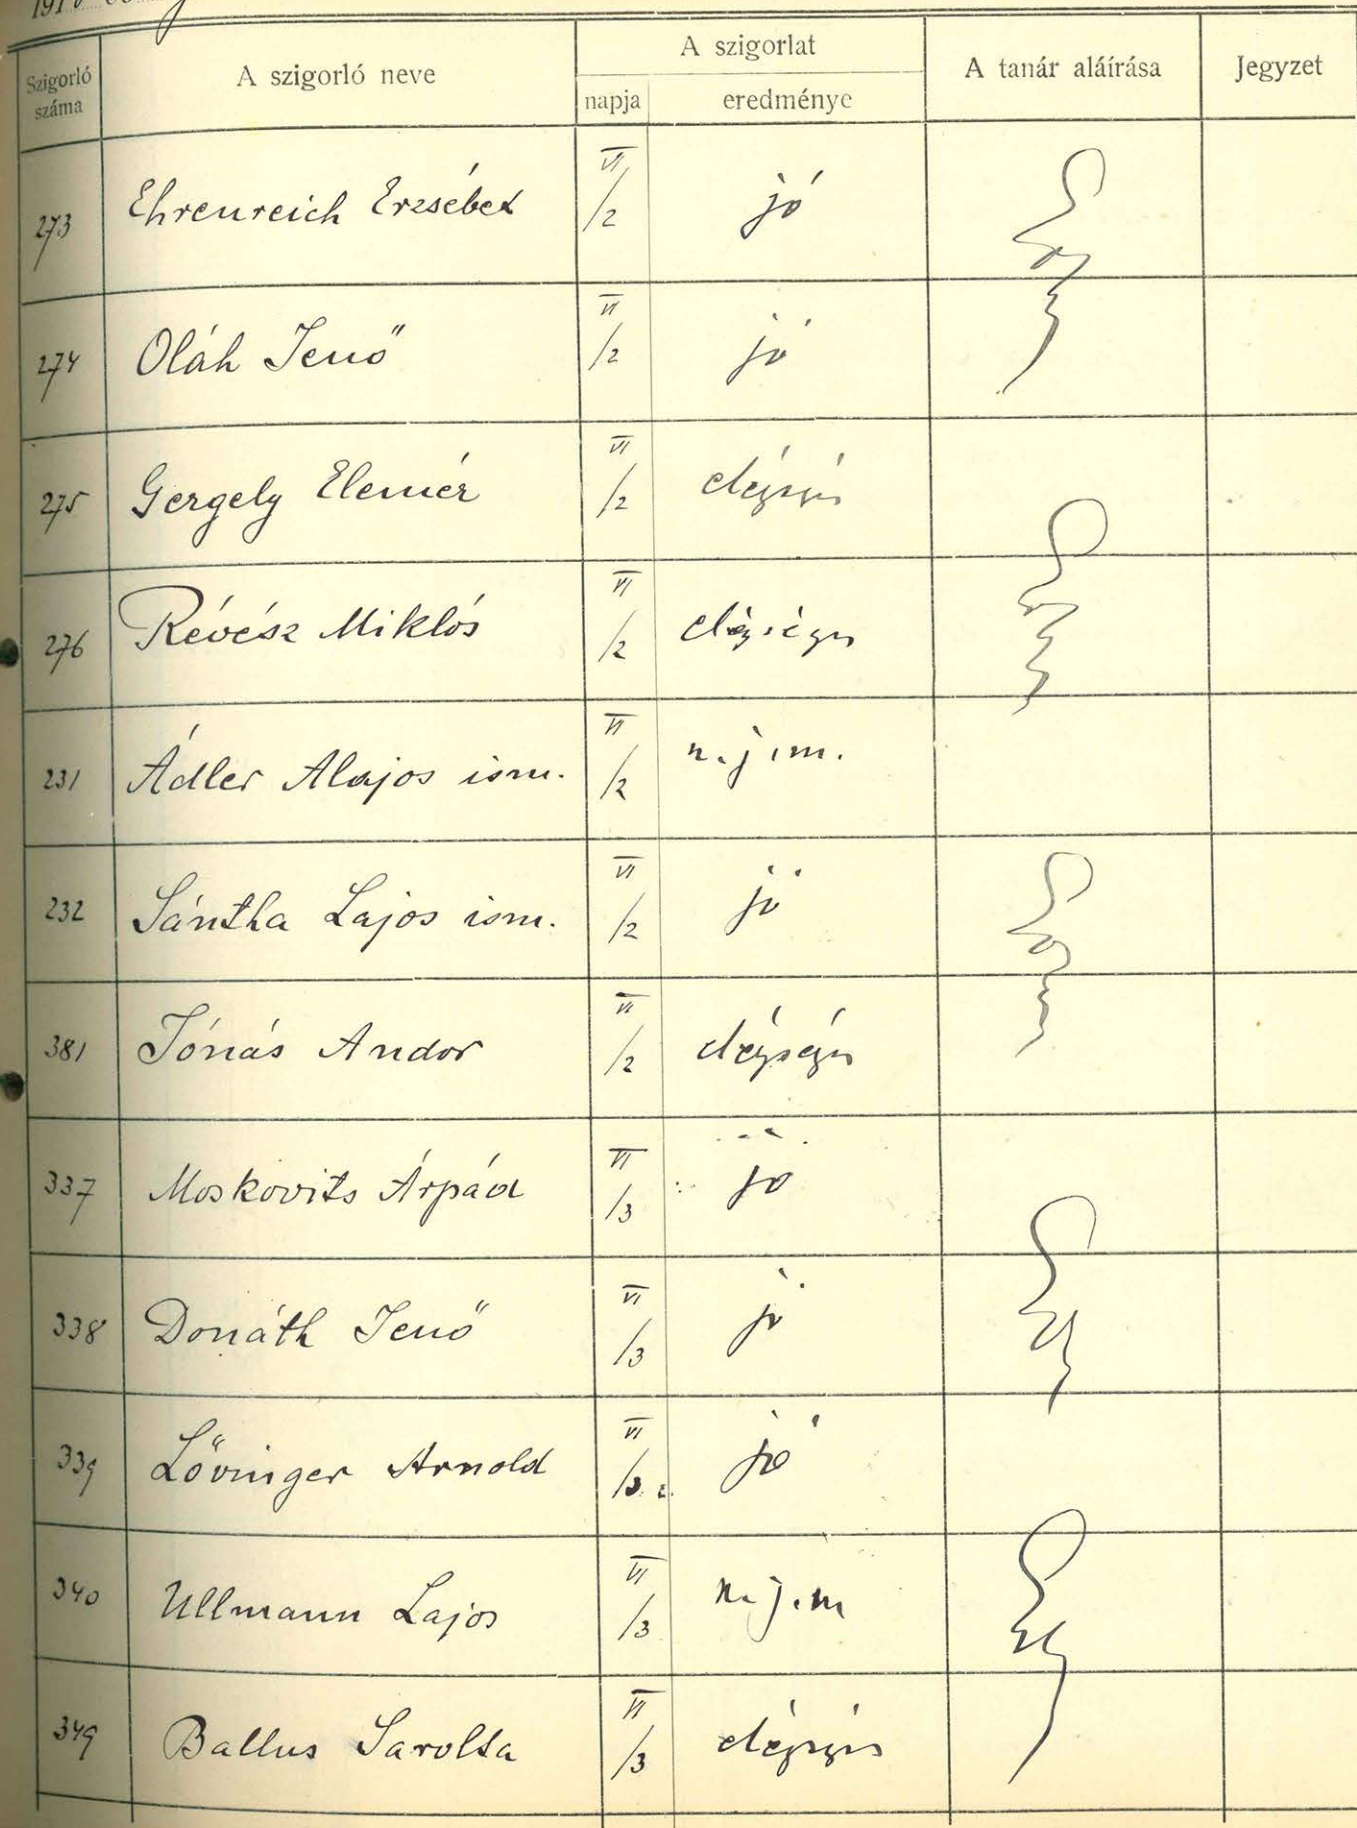 Szigorló száma | A szigorló neve | A szigorlat | A tanár aláírása | Jegyzet
napja | eredménye
273 | Ehrenreich Erzsébet | VI/2 | jó
274 | Oláh Jenő | VI/2 | jó
275 | Gergely Elemér | VI/2 | elégséges
276 | Révész Miklós | VI/2 | elégséges
231 | Ádler Alajos ism. | VI/2 | n. j. m.
232 | Sántha Lajos ism. | VI/2 | jó
381 | Jónás Andor | VI/2 | elégséges
337 | Moskovits Árpád | VI/3 | jó
338 | Donáth Jenő | VI/3 | jó
339 | Lövinger Arnold | VI/3 | jó
340 | Ullmann Lajos | VI/3 | n. j. m
349 | Ballus Sarolta | VI/3 | elégséges